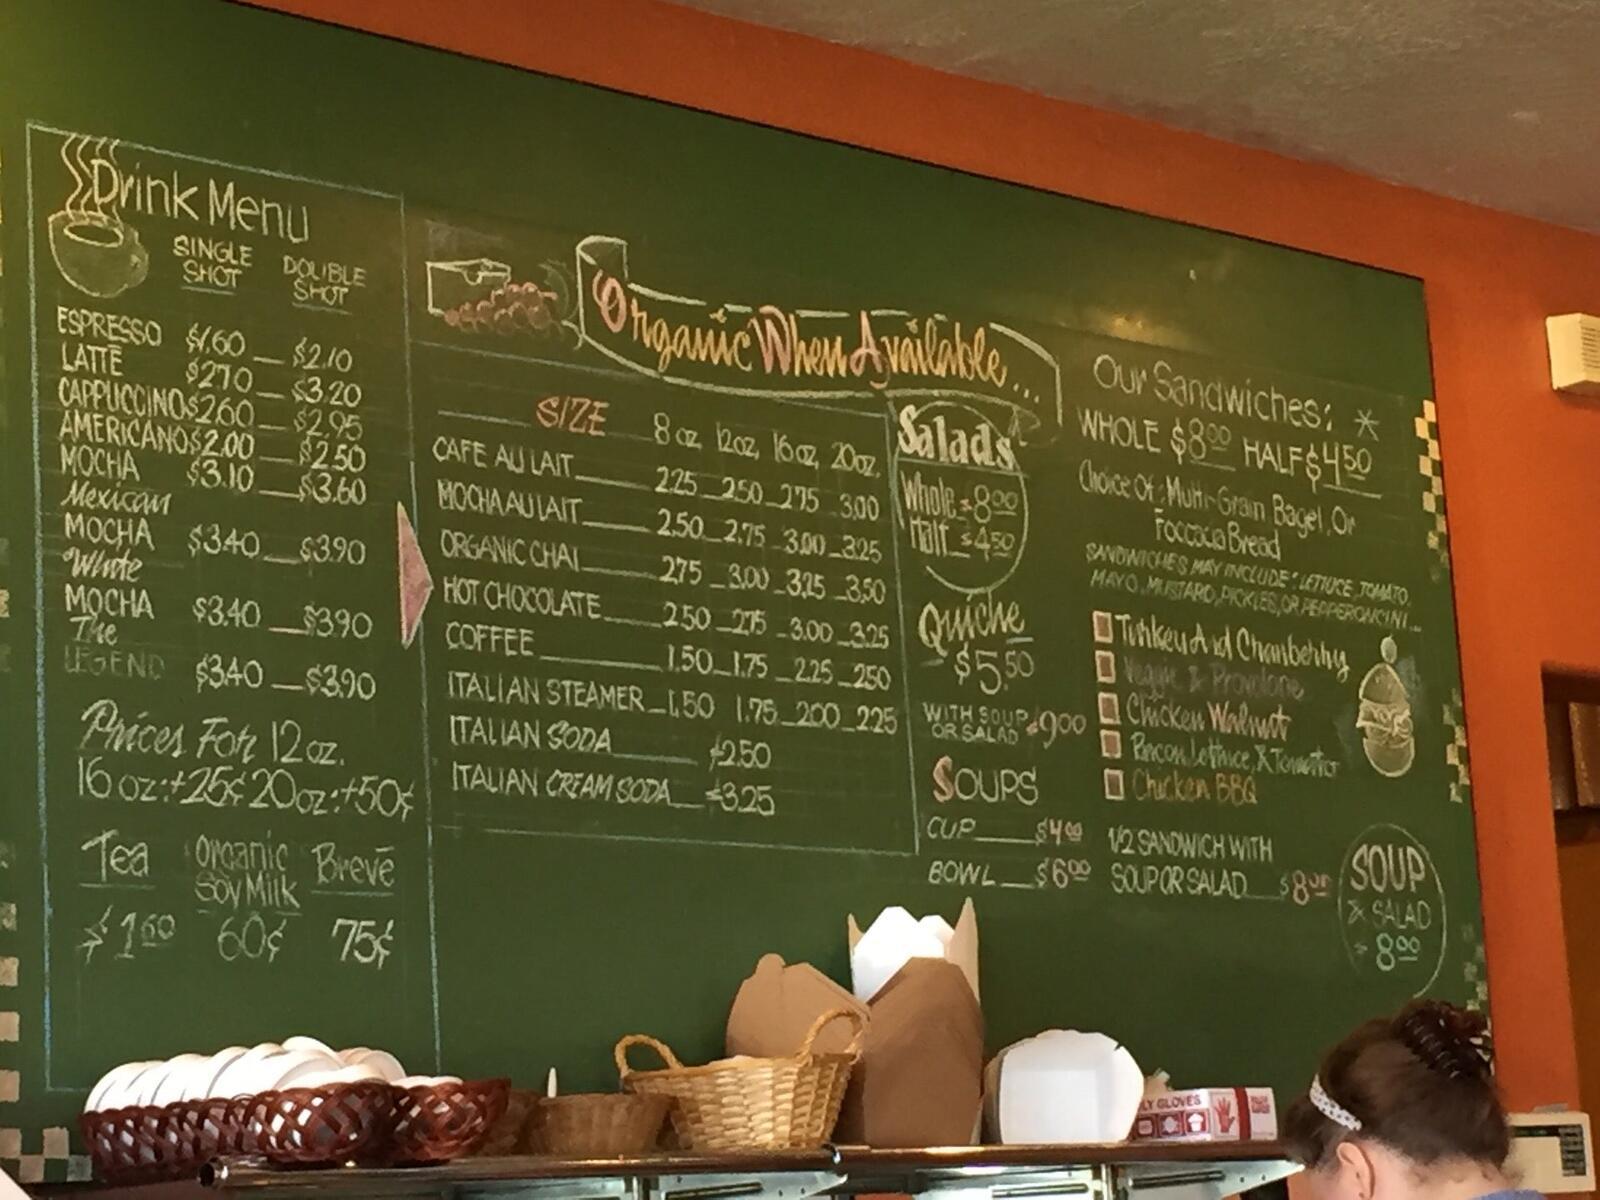 Drink Menu
SINGLE SHOT DOUBLE SHOT
ESPRESSO $1.60 $2.10
LATTE $2.70 $3.20
CAPPUCCINO $2.60 $2.95
AMERICANO $2.00 $2.50
MOCHA $3.10 $3.60
Mexican
MOCHA $3.40 $3.90
White
MOCHA $3.40 $3.90
The
LEGEND $3.40 $3.90
Prices For 12 oz.
16 oz:+25¢ 20oz:+50¢
Tea Organic Soy Milk Breve
$1.60 60¢ 75¢
Organic When Available...
SIZE 8 oz, 12oz, 16 oz, 20oz,
CAFE AU LAIT 2.25 2.50 2.75 3.00
MOCHA AU LAIT 2.50 2.75 3.00 3.25
ORGANIC CHAI 2.75 3.00 3.25 3.50
HOT CHOCOLATE 2.50 2.75 3.00 3.25
COFFEE 1.50 1.75 2.25 2.50
ITALIAN STEAMER 1.50 1.75 2.00 2.25
ITALIAN SODA $2.50
ITALIAN CREAM SODA $3.25
Salads
Whole $8.00
Half $4.50
Quiche
$5.50
WITH SOUP
OR SALAD $9.00
SOUPS
CUP $4.00
BOWL $6.00
Our Sandwiches: *
WHOLE $8.00 HALF $4.50
Choice Of: Multi-Grain Bagel, Or
Foccacia Bread
SANDWICHES MAY INCLUDE: LETTUCE, TOMATO,
MAYO, MUSTARD, PICKLES, OR PEPPERONCINI...
Turkey And Cranberry
Veggie & Provolone
Chicken Walnut
Bacon, Lettuce, & Tomato
Chicken BBQ
1/2 SANDWICH WITH
SOUP OR SALAD $8.00
SOUP
& SALAD
$8.00
LY GLOVES